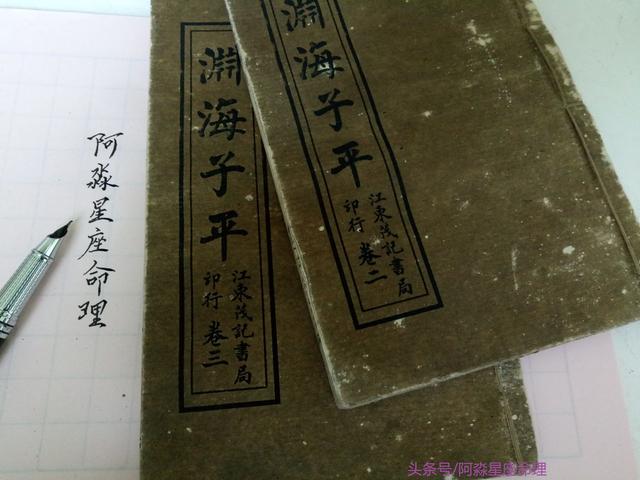 阿淼星座命理
淵海子平
江東茂記書局
印行
卷三
淵海子平
江東茂記書局
印行
卷二
头条号/阿淼星座命理